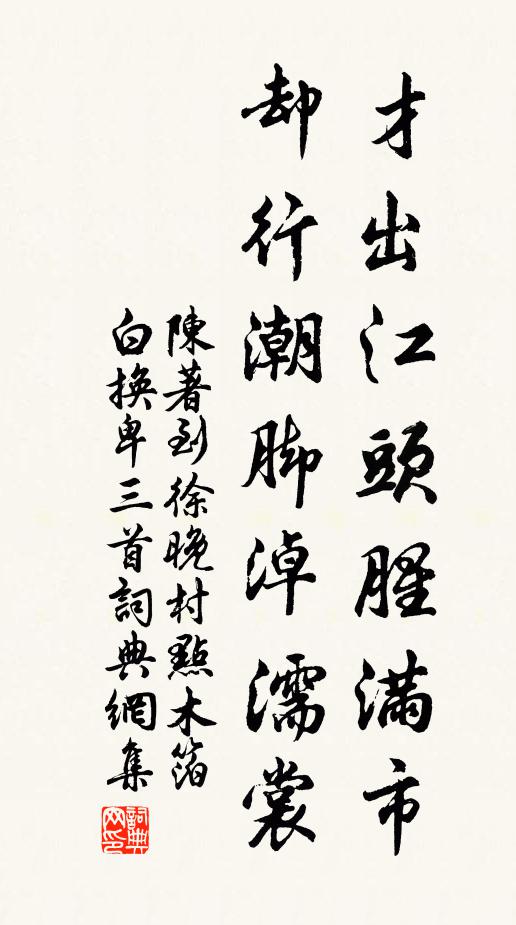 才出江頭腥滿市
却行潮脚淖濡裳
陳著到徐晚村點木箔
白換卑三首詞典網集
詞典
网印